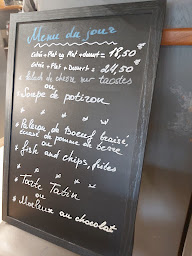 Menu du jour
Entrée + Plat ou Plat + dessert = 18,50€
Entrée + Plat + Dessert = 24,50€
* de chèvre sur tacotes
ou
* Soupe de potiron
* * * * *
* Paleron de Boeuf braisé
écrasé de pomme de terre
ou
* fish and chips, frites
* * * * *
* Tarte Tatin
ou
* Moelleux au chocolat